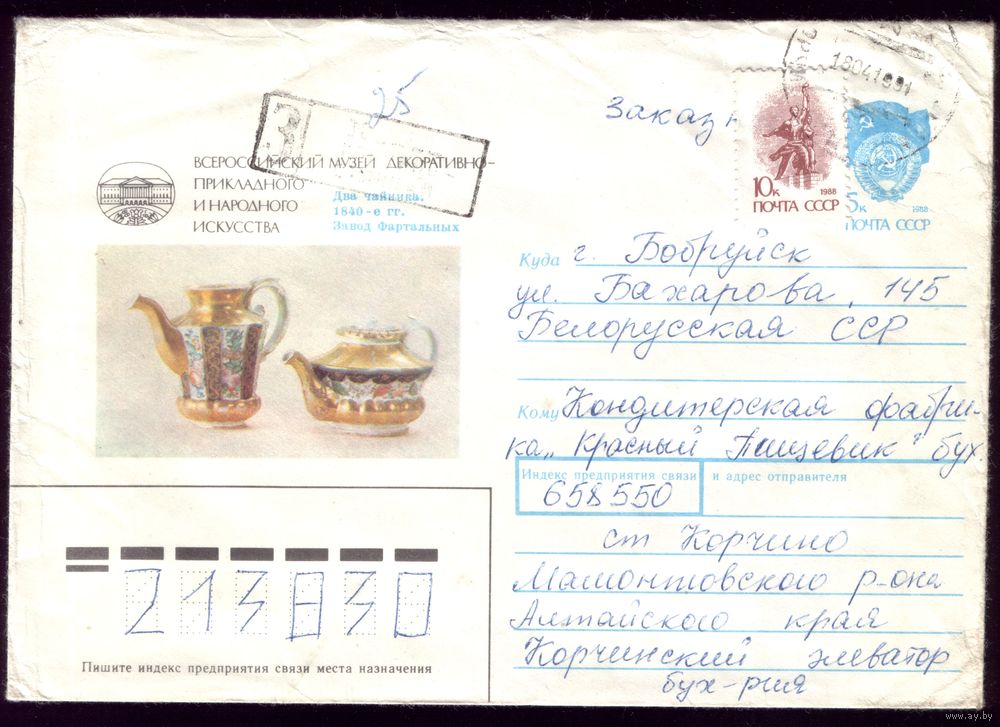 25
Заказн
18041991
ВСЕРОССИЙСКИЙ МУЗЕЙ ДЕКОРАТИВНО-
ПРИКЛАДНОГО
И НАРОДНОГО
ИСКУССТВА
Два чайника.
1840-е гг.
Завод Фартальных
З
10к 1988
ПОЧТА СССР
5к 1988
ПОЧТА СССР
Куда г. Бобруйск
ул. Бахарова, 145
Белорусская ССР
Кому Кондитерская фабри-
ка „Красный Пищевик" бух.
Индекс предприятия связи и адрес отправителя
658550
ст Корчино
Мамонтовского р-она
Алтайского края
Корчинский элеватор
бух-рия
213830
Пишите индекс предприятия связи места назначения
www.ay.by